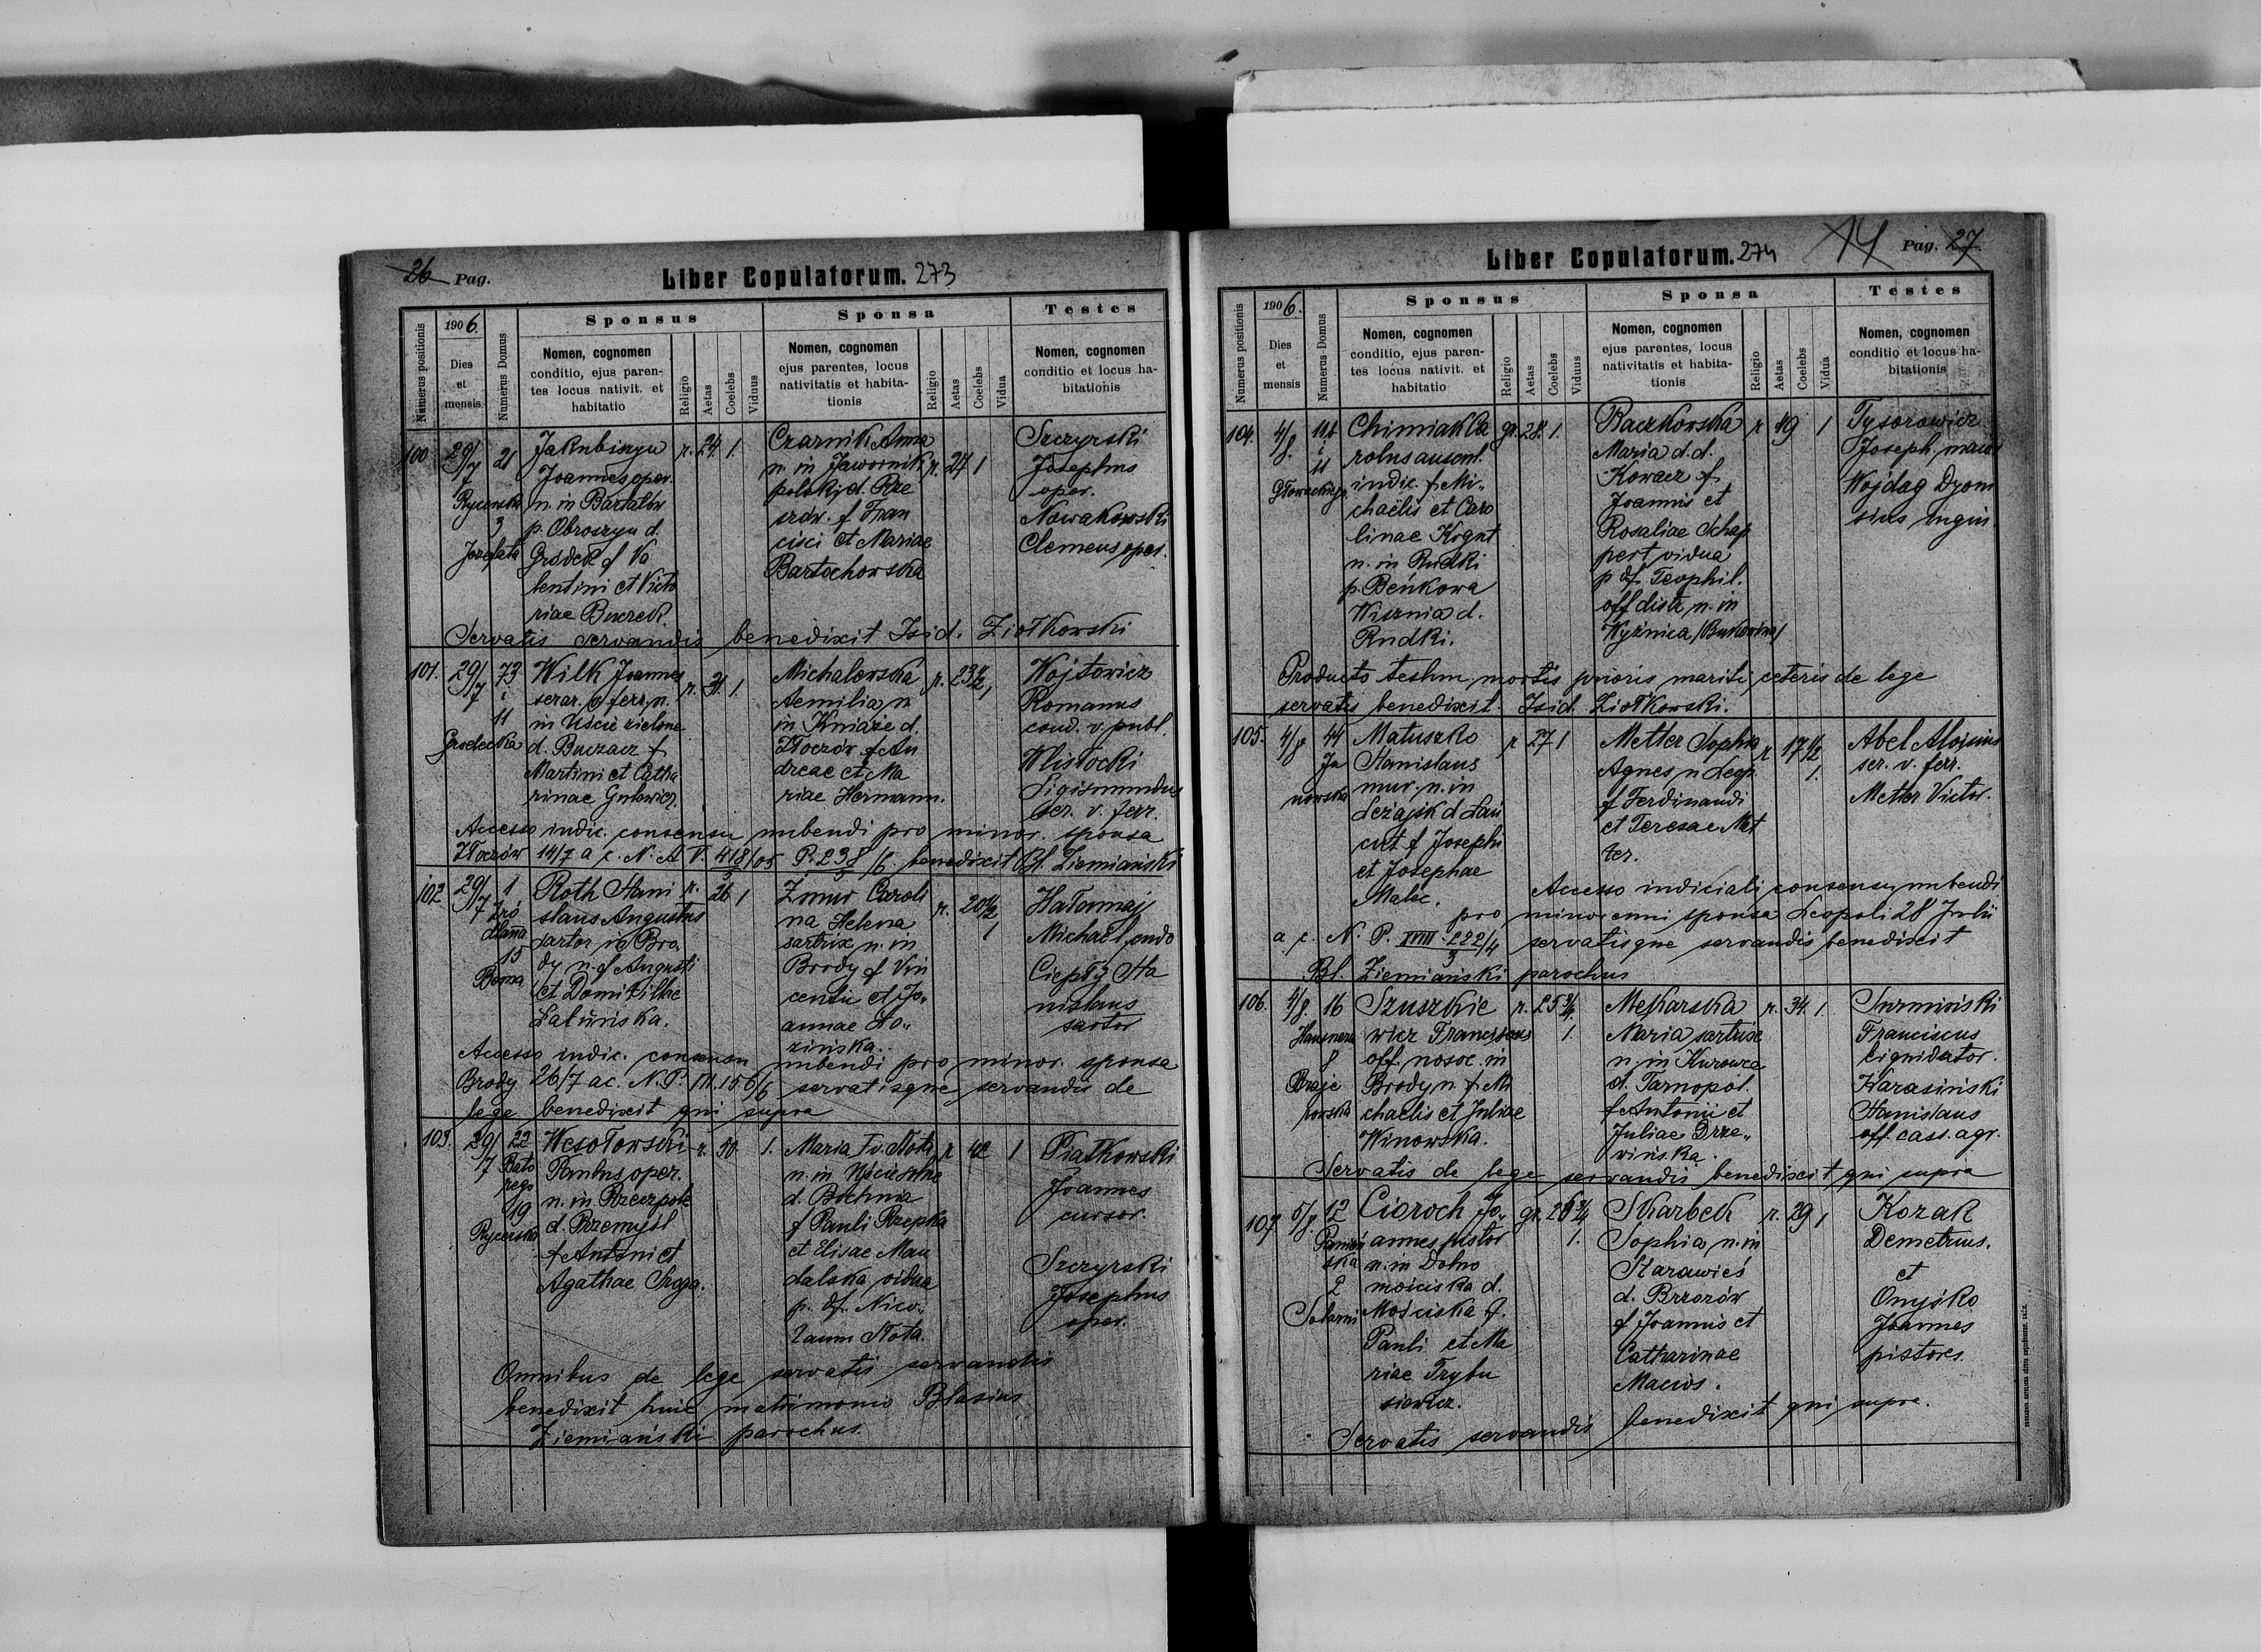 26 Pag.
Liber Copulatorum. 273
Numerus positionis
1906.
Dies
et
mensis
Numerus Domus
Sponsus
Nomen, cognomen
conditio, ejus paren-
tes locus nativit. et
habitatio
Religio
Aetas
Coelebs
Viduus
Sponsa
Nomen, cognomen
ejus parentes, locus
nativitatis et habita-
tionis
Religio
Aetas
Coelebs
Vidua
Testes
Nomen, cognomen
conditio et locus ha-
bitationis
100
29/7
21
Rycerska
3
Jozefata
Jakubiszyn
Joannes oper.
n. in Bartatów
p. Obroszyn d.
Gródek f Va
lentini et Victo
riae Buczek.
r. 24. 1.
Czarnik Anna
n. in Jawornik
polski d. Rze
szów. f Fran
cisci et Mariae
Bartochowska
r. 27 1
Szczyrski
Josephus
oper.
Nowakowski
Clemens oper.
Servatis servandis benedixit Isid. Ziołkowski
101.
29/7
73
i
11
Grodecka
Wilk Joannes
serar. v. ferr. n.
in Uście zielone
d. Buczacz f
Martini et Catha
rinae Gulewicz.
r. 31. 1.
Michalewska
Aemilia n
in Kniaże d.
Złoczów f An
dreae et Ma
riae Hermann.
r. 23 1/2 1
Wojtowicz
Romanus
cond. v. publ.
Wlisłocki
Sigismundus
ser. v. ferr.
Accesso indic. consensu nubendi pro minor. sponsa
Złoczów 14/7 a c. N. A V. 418/05 P. 238/6. benedixit Bl. Ziemiański
102
29/7
1
Zró
dlana
15
Bema
Roth Stani
slaus Augustus
sartor in Bro.
dy n. f Augusti
et Domitillae
Laluńska.
r. 26 1
Zmur Caroli
na Helena
sartrix n. in
Brody f Vin
centii et Jo„
annae Ło„
zińska.
r. 20 1/2 1
Hałamaj
Michaël, cudo
Ciepły Sta
nislaus
sartor
Accesso indic. consensu nubendi pro minor. sponsa
Brody 26/7 a c. N. P. III. 156/6 servatisque servandis de
lege benedixit qui supra
103.
29/7
22
Bato
rego
19
Rycerska
Wesołowski
Paulus oper.
n. in Brzezpole
d. Przemyśl
f Antoni et
Agathae Sroga.
r. 50. 1.
Maria Nota
n. in
d. Bochnia
f Pauli Rzepka
et Elisae Man
dalska vidua
p. df. Nico„
laum Nota.
r 42 1
Piatkowski
Joannes
cursor.
Szczyrski
Josephus
oper.
Omnibus de lege servatis servandis
benedixit huic matrimonio Blasius
Ziemiański parochus.
Liber Copulatorum. 274
14
Pag. 27
Numerus positionis
1906.
Dies
et
mensis
Numerus Domus
Sponsus
Nomen, cognomen
conditio, ejus paren-
tes locus nativit. et
habitatio
Religio
Aetas
Coelebs
Viduus
Sponsa
Nomen, cognomen
ejus parentes, locus
nativitatis et habita-
tionis
Religio
Aetas
Coelebs
Vidua
Testes
Nomen, cognomen
conditio et locus ha-
bitationis
104.
4/8.
i
11
Głowackiego
Chimiak Ca
rolus auscul.
indic. f Mi„
chaëlis et Caro
linae Krgut
n. in Rudki
p. Beńkowa
Wisznia d.
Rudki.
gr. 28. 1.
Baczkowska
Maria d.d.
Kowacz f
Joannis et
Rosaliae Schap
pert vidua
p df. Teophil.
off distr n. in
Wyżnica /Bukowina/
r 49 1
Tysorowicz
Joseph,
Wojdag Dyoni
sius ingin.
Producto testim mortis prioris mariti, ceteris de lege
servatis benedixit. Isid. Ziołkowski.
105.
4/8
44
Ja
nowska
Matuszko
Stanislaus
mur. n. in
Leżajsk d Łań
cut f Josephi
et Josephae
Malec.
r 27 1
Metter Sophia
Agnes n Leop.
f Ferdinandi
et Teresae Met
ter.
r 17 1/2 1.
Abel Aloisius
ser. v. ferr.
Metter Victor.
Accesso indiciali consensu nubendi
pro minorenni sponsa Leopoli 28 Julii
a c. N. P. XVIII 222/4 servatisque servandis benedixit
Bl. Ziemiański parochus
106.
4/8.
16
Hausnera
8
Braje
rowska
Szuszkie
wicz Franciscus
off. nosoc. in
Brody n. f Mi
chaëlis et Juliae
Winowska.
r. 25 3/4 1.
Mekarska
Maria sartrix
n. in Kurowce
d. Tarnopol.
f Antonii et
Juliae Drze„
wińska.
r. 34. 1.
Surmiński
Franciscus
liquidator.
Harasiński
Stanislaus
off. cass. agr.
Servatis de lege servandis benedixit qui supra
107
5/8.
12
Panień
ska
2
Solarni
Cioroch Jo„
annes pistor
n. in Dolno
mościska d.
Mościska f.
Pauli et Ma
riae Trybu
siewicz.
gr. 26 3/4 1.
Skarbek
Sophia n. in
Starawieś
d. Brzozów
f Joannis et
Catharinae
Macios.
r. 29 1
Kozak
Demetrius.
et
Onyśko
Joannes
pistores.
Servatis servandis benedixit qui supra.